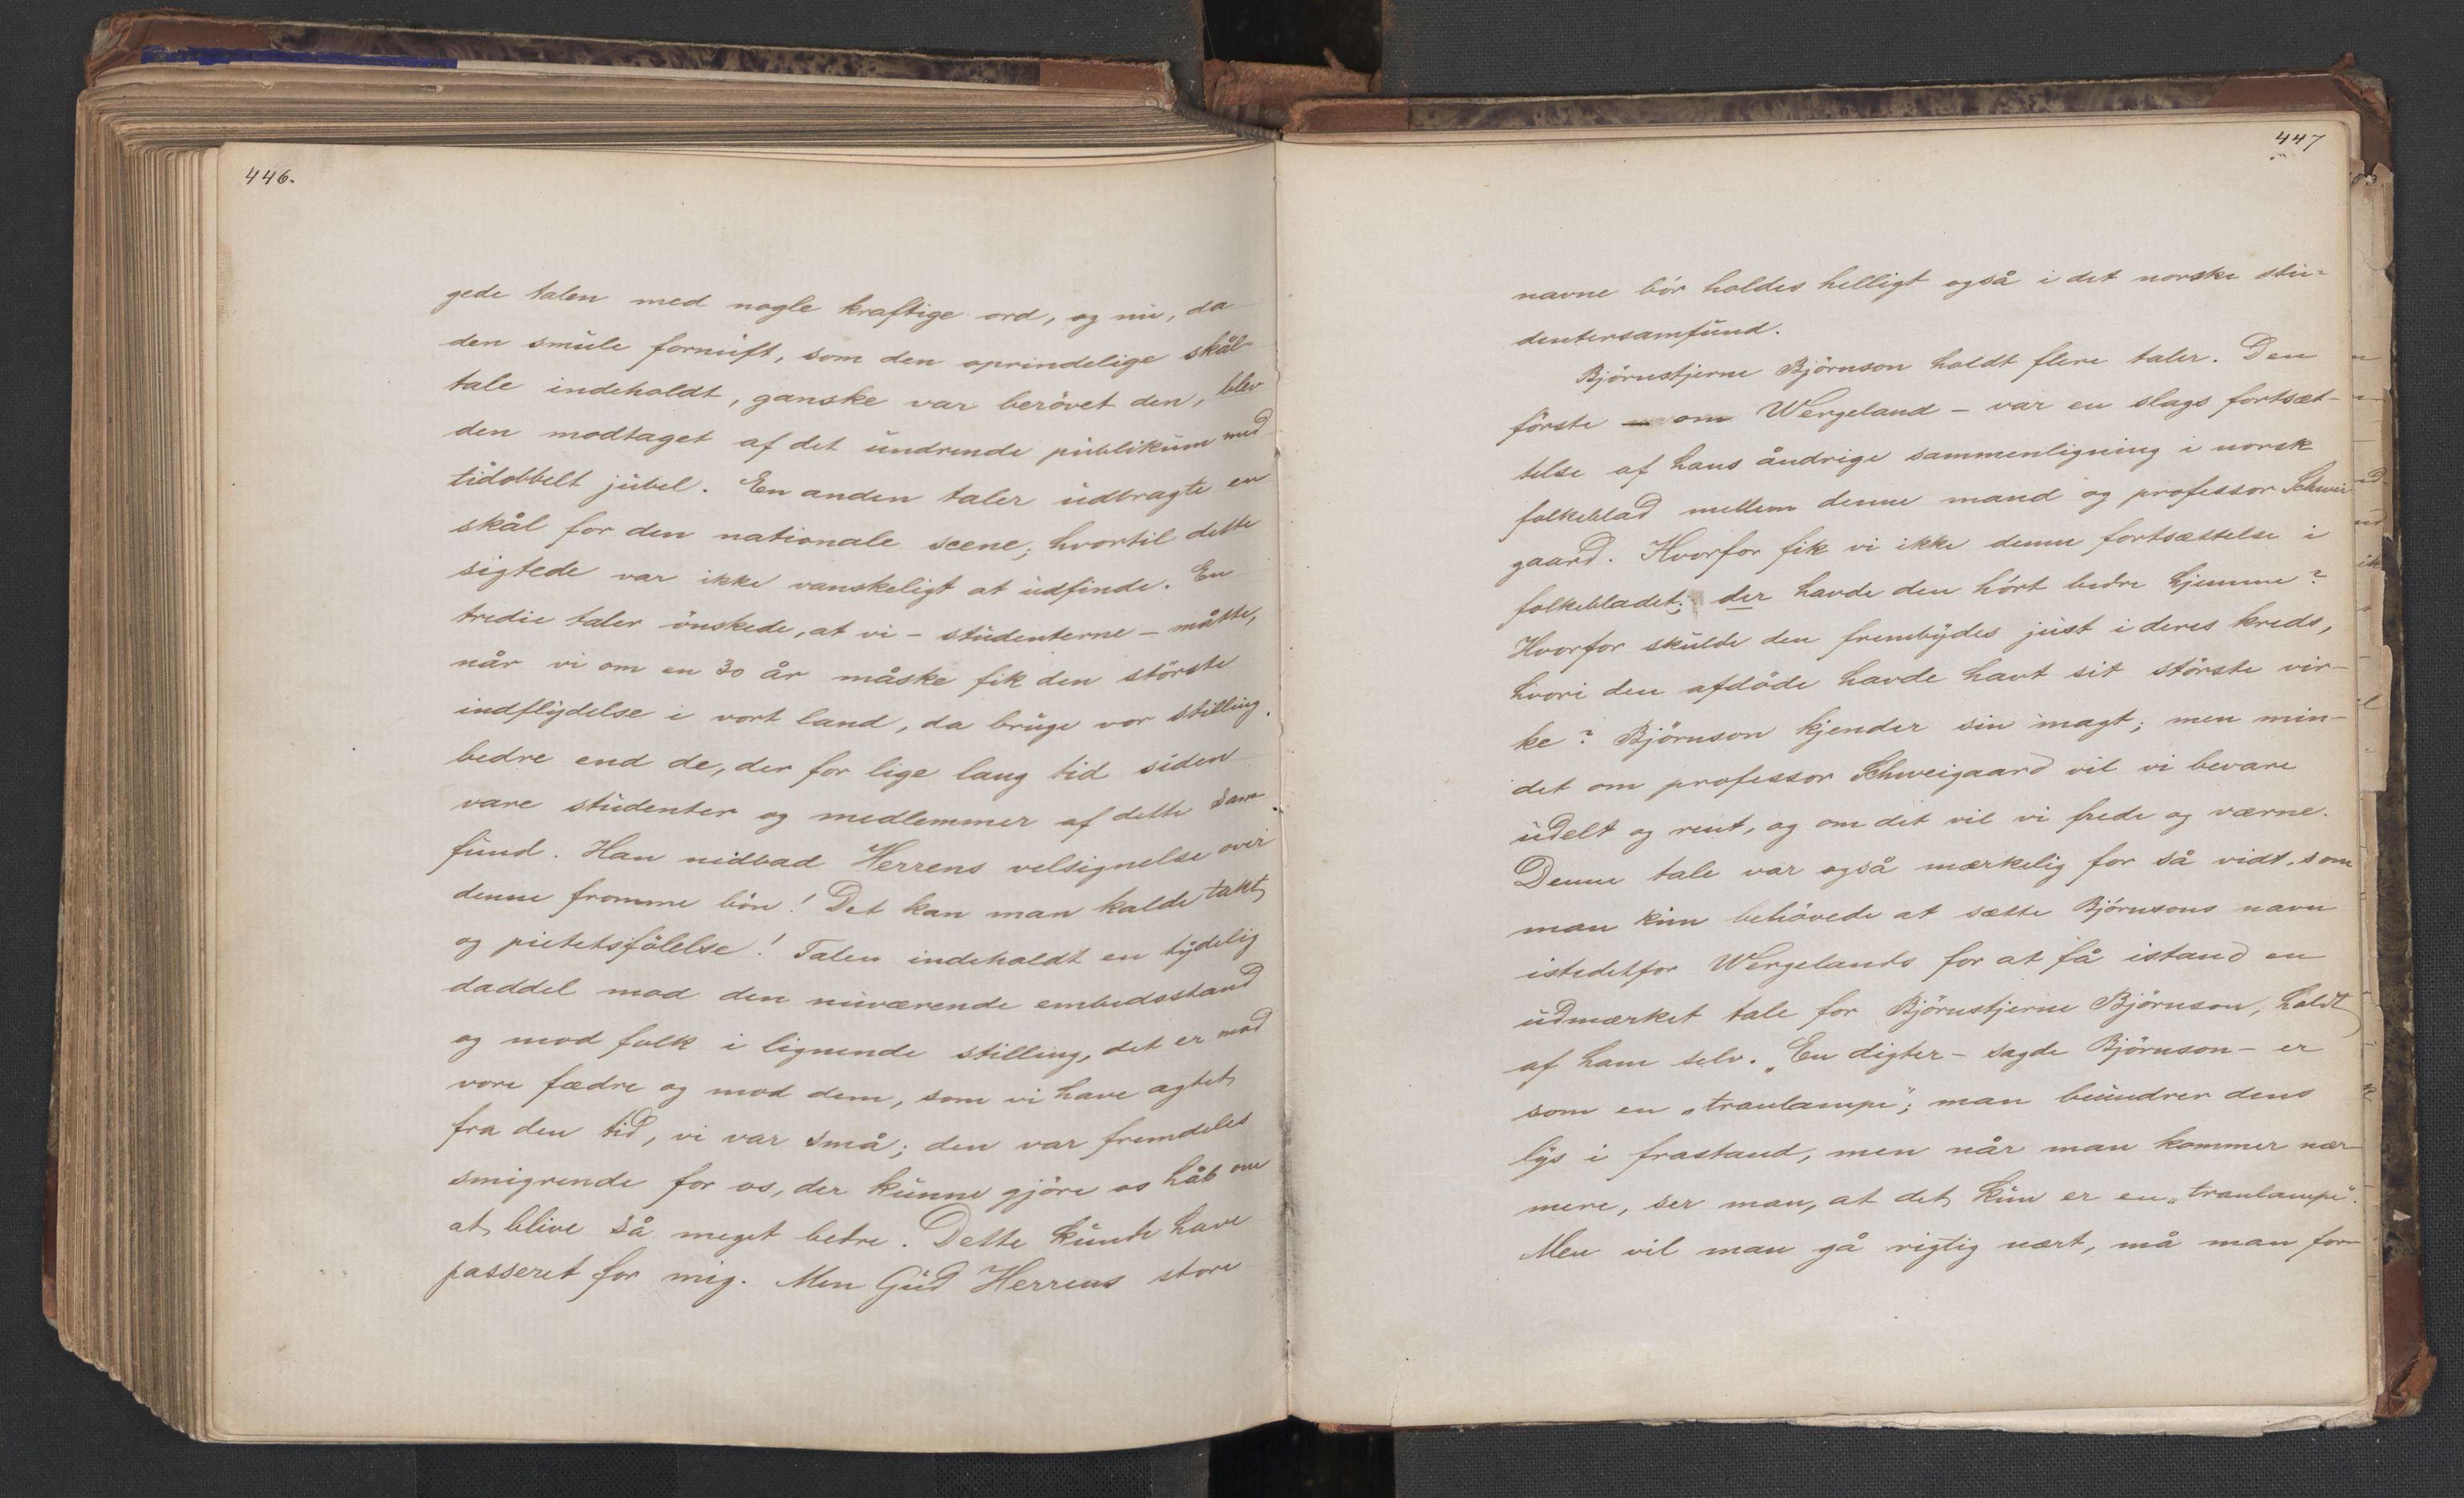 446.
gede talen med nogle kraftige ord, og nu, da
den smule fornuft, som den oprindelige skål-
tale indeholdt, ganske var berövet den, blev
den modtaget af det undrende publikum med
tidobbelt jubel. En anden taler udbragte en
skål for den nationale scene; hvortil dette
sigtede var ikke vanskeligt at udfinde. En
tredie taler önskede, at vi - studenterne - måtte,
når vi om en 30 år måske fik den störste
indflydelse i vort land, da bruge vor stilling
bedre end de, der for lige lang tid siden
vare studenter og medlemmer af dette sam-
fund. Han nedbad Herrens velsignelse over
denne fromme bön! Det kan man kalde takt
og pietetsfölelse! Talen indeholdt en tydelig
daddel mod den nuværende embedsstand
og mod folk i lignende stilling, det er mod
vore fædre og mod dem, som vi have agtet
fra den tid, vi var små; den var fremdeles
smigrende for os, der kunne gjöre os håb om
at blive så meget bedre. Dette kunde have
passeret for mig. Men Gud Herrens store
447
navne bör holdes helligt også i det norske stu-
dentersamfund.
Björnstjerne Björnson holdt flere taler. Den
förste - om Wergeland - var en slags fortsæt-
telse af hans åndrige sammenligning i norsk
folkeblad mellem denne mand og professor Schwei
gaard. Hvorfor fik vi ikke denne fortsættelse i
folkebladet; der havde den hört bedre hjemme?
Hvorfor skulde den frembydes just i deres kreds,
hvori den afdöde havde havt sit störste vir-
ke? Björnson kjender sin magt; men min-
det om professor Schweigaard vil vi bevare
udelt og rent, og om det vil vi frede og værne.
Denne tale var også mærkelig for så vidt, som
man kun behövede at sætte Björnsons navn
istedetfor Wergelands for at få istand en
udmærket tale for Björnstjerne Björnson, holdt
af ham selv. „En digter - sagde Björnson - er
som en „tranlampe"; man beundrer dens
lys i frastand, men når man kommer nær-
mere, ser man, at det kun er en „tranlampe".
Men vil man gå rigtig nært, må man for-